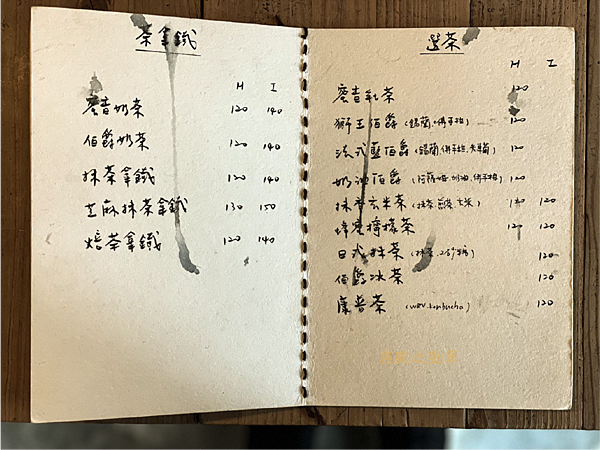 茶拿鐵
H I
麼吉奶茶 120 140
伯爵奶茶 120 140
抹茶拿鐵 120 140
芝麻抹茶拿鐵 130 150
焙茶拿鐵 120 140
茶
H I
麼吉乳茶 120
獅王伯爵 (錫蘭.佛手柑) 120
法式藍伯爵 (錫蘭.佛手柑.矢車菊) 120
奶油伯爵 (阿薩姆.奶油.佛手柑) 120
抹香玄米茶 (抹茶.煎茶.玄米) 120
蜂蜜檸檬茶 120 120
日式抹茶 120
伯爵冰茶 120
康普茶 (WBV.kombucha) 120